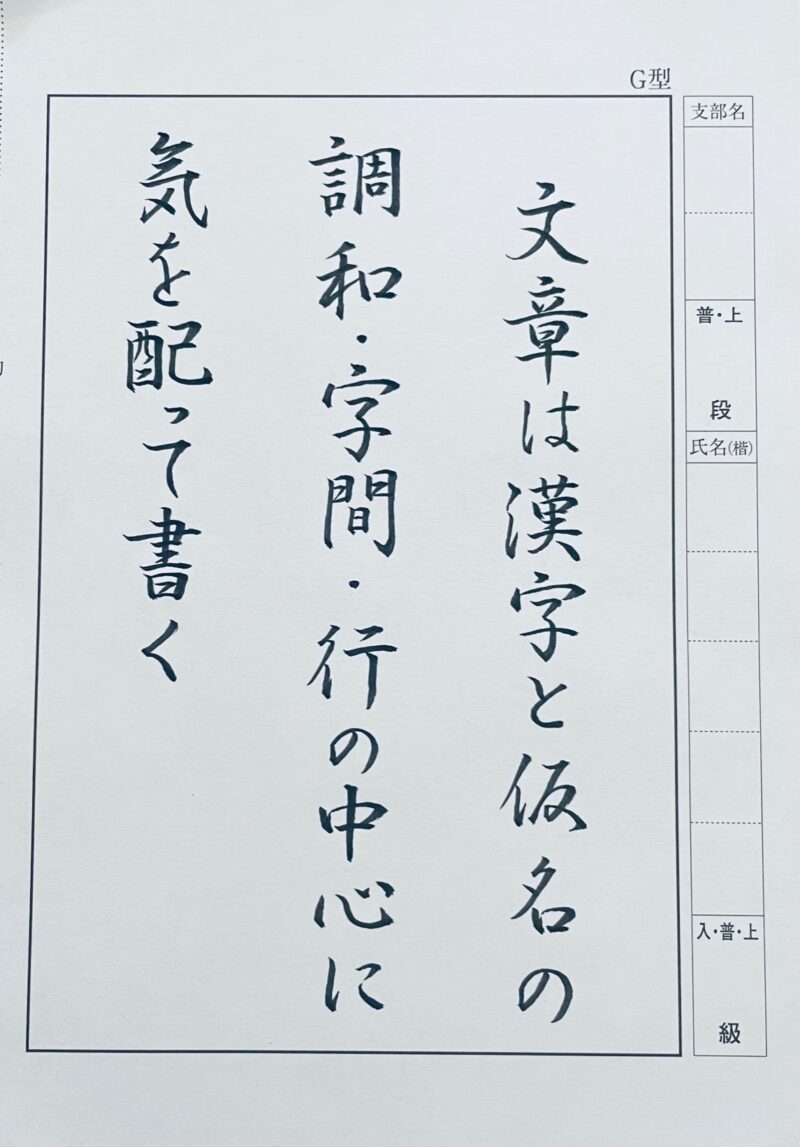 G型
支部名
普・上
段
氏名(楷)
入・普・上
級
文章は漢字と仮名の
調和・字間・行の中心に
気を配って書く